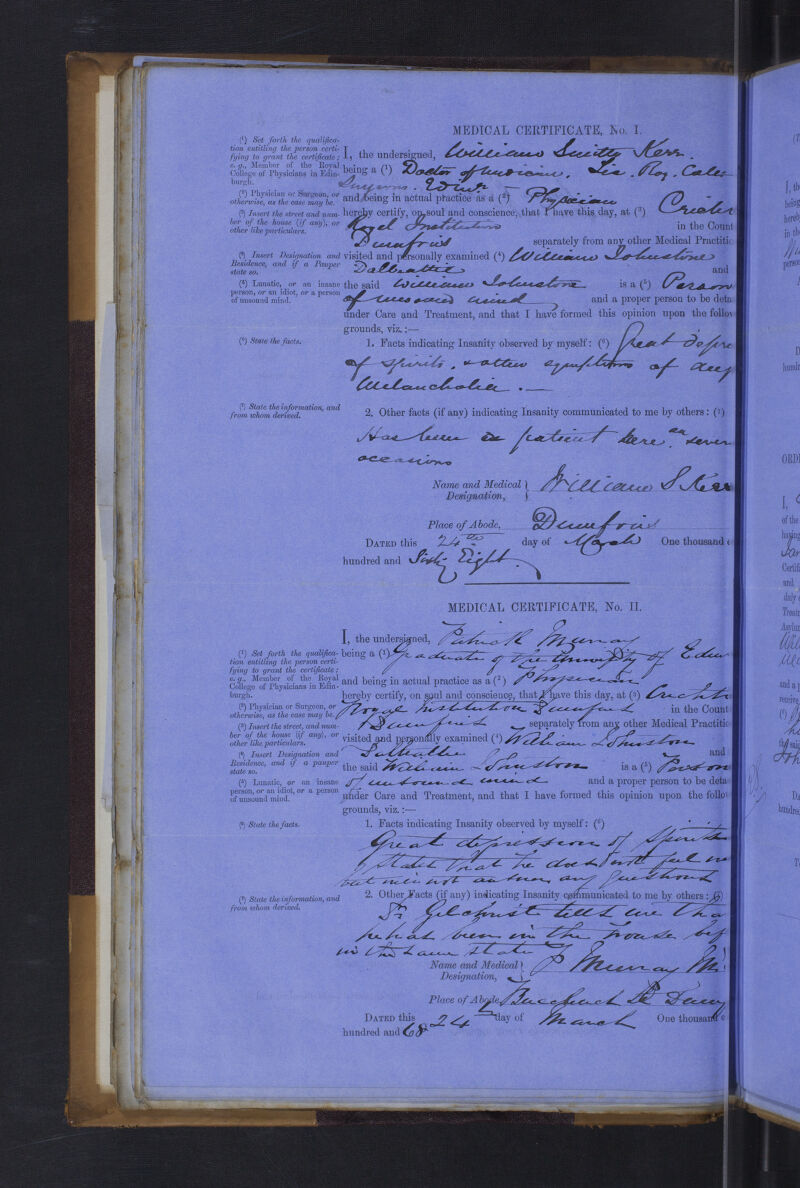 MEDICAL CERTIFICATE, No. I.
(¹) Set forth the qualifica-
tion entitling the person certi-
fying to grant the certificate;
e.g., Member of the Royal
College of Physicians in Edin-
burgh.
(²) Physician or Surgeon, or
otherwise, as the case may be.
(³) Insert the street and num-
ber of the house (if any), or
other like particulars.
(⁴) Insert Designation and
Residence, and if a Pauper
state so.
(⁵) Lunatic, or an insane
person, or an idiot, or a person
of unsound mind.
(⁶) State the facts.
(⁷) State the information, and
from whom derived.
I, the undersigned, William Smith Kerr.
being a (¹) Doctor of Medicine. Lic. Roy. Coll
Surgeons. Edinr
and being in actual practice as a (²) Physician
hereby certify, on soul and conscience, that I have this day, at (³) Crichton
Royal Institution in the Count
Dumfries separately from any other Medical Practitio
visited and personally examined (⁴) William Johnstone
Dalbeattie and
the said William Johnstone is a (⁵) Person
of unsound mind and a proper person to be deta
under Care and Treatment, and that I have formed this opinion upon the follow
grounds, viz.:—
1. Facts indicating Insanity observed by myself: (⁶) Great depre
of spirits. & other symptoms of deep
Melancholia.—
2. Other facts (if any) indicating Insanity communicated to me by others: (⁷)
Has been a patient here on seven
occasions
Name and Medical Designation, William S Kerr
Place of Abode, Dumfries
DATED this 24th day of March One thousand e
hundred and Sixty Eight.
MEDICAL CERTIFICATE, No. II.
(¹) Set forth the qualifica-
tion entitling the person certi-
fying to grant the certificate;
e.g., Member of the Royal
College of Physicians in Edin-
burgh.
(²) Physician or Surgeon, or
otherwise, as the case may be.
(³) Insert the street, and num-
ber of the house (if any), or
other like particulars.
(⁴) Insert Designation and
Residence, and if a pauper
state so.
(⁵) Lunatic, or an insane
person, or an idiot, or a person
of unsound mind.
(⁶) State the facts.
(⁷) State the information, and
from whom derived.
I, the undersigned, Patrick Murray
being a (¹) Graduate of the University of Edin
and being in actual practice as a (²) Physician
hereby certify, on soul and conscience, that I have this day, at (³) Crichton
Royal Institution Dumfries in the Count
Dumfries separately from any other Medical Practitio
visited and personally examined (⁴) William Johnston
Dalbeattie and
the said William Johnston is a (⁵) Person
of unsound mind and a proper person to be deta
under Care and Treatment, and that I have formed this opinion upon the follo
grounds, viz.:—
1. Facts indicating Insanity observed by myself: (⁶)
Great depression of Spirits
States that he does not feel
but will not answer any questions
2. Other Facts (if any) indicating Insanity communicated to me by others: (⁷)
Dr Gilchrist tells me tha
he has been in the house bef
in the same state
Name and Medical Designation, P Murray M
Place of Abode, Buccleuch St Dum
DATED this 24 day of March One thousand e
hundred and 68